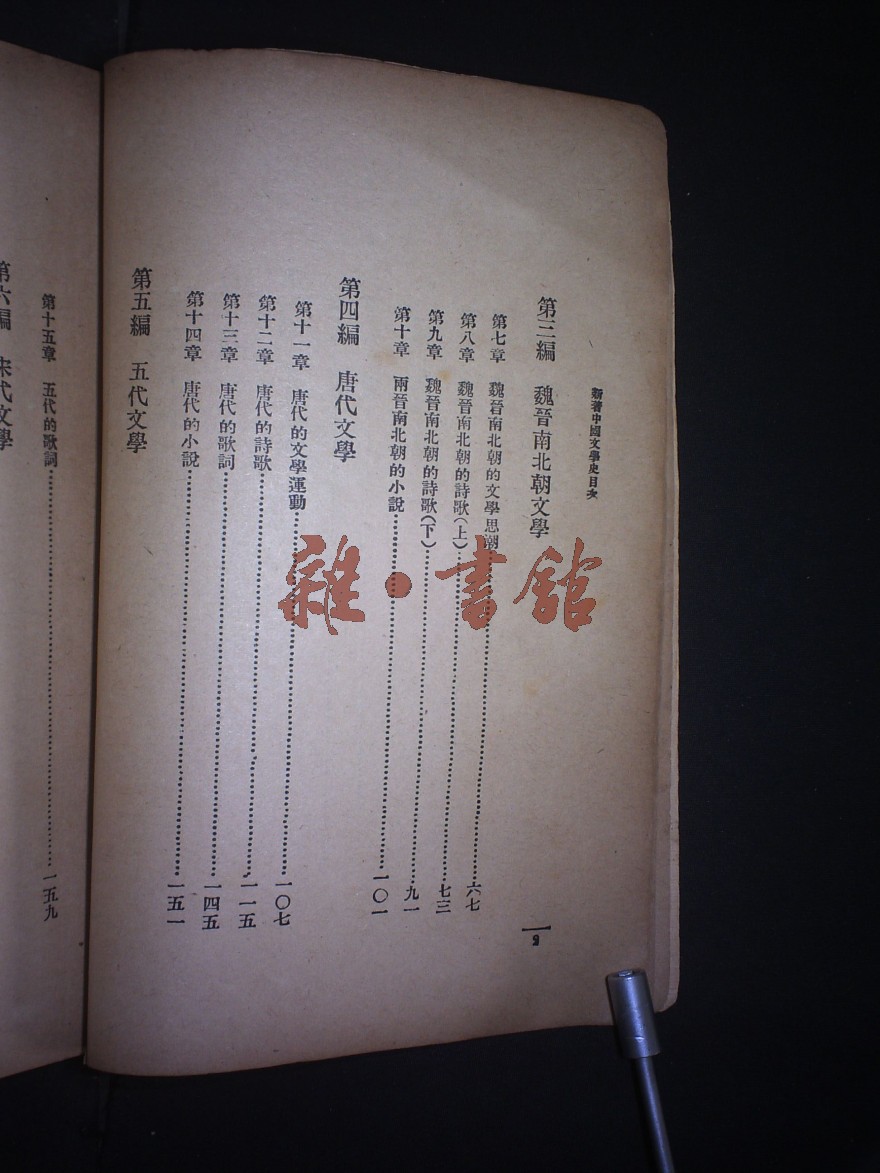 新著中國文學史目次
第三編 魏晉南北朝文學
第七章 魏晉南北朝的文學思潮……六七
第八章 魏晉南北朝的詩歌(上)……七三
第九章 魏晉南北朝的詩歌(下)……九一
第十章 兩晉南北朝的小說……一〇一
第四編 唐代文學
第十一章 唐代的文學運動……一〇七
第十二章 唐代的詩歌……一一五
第十三章 唐代的歌詞……一四五
第十四章 唐代的小說……一五一
第五編 五代文學
2
第十五章 五代的歌詞……一五九
第六編 宋代文學
雜·書館